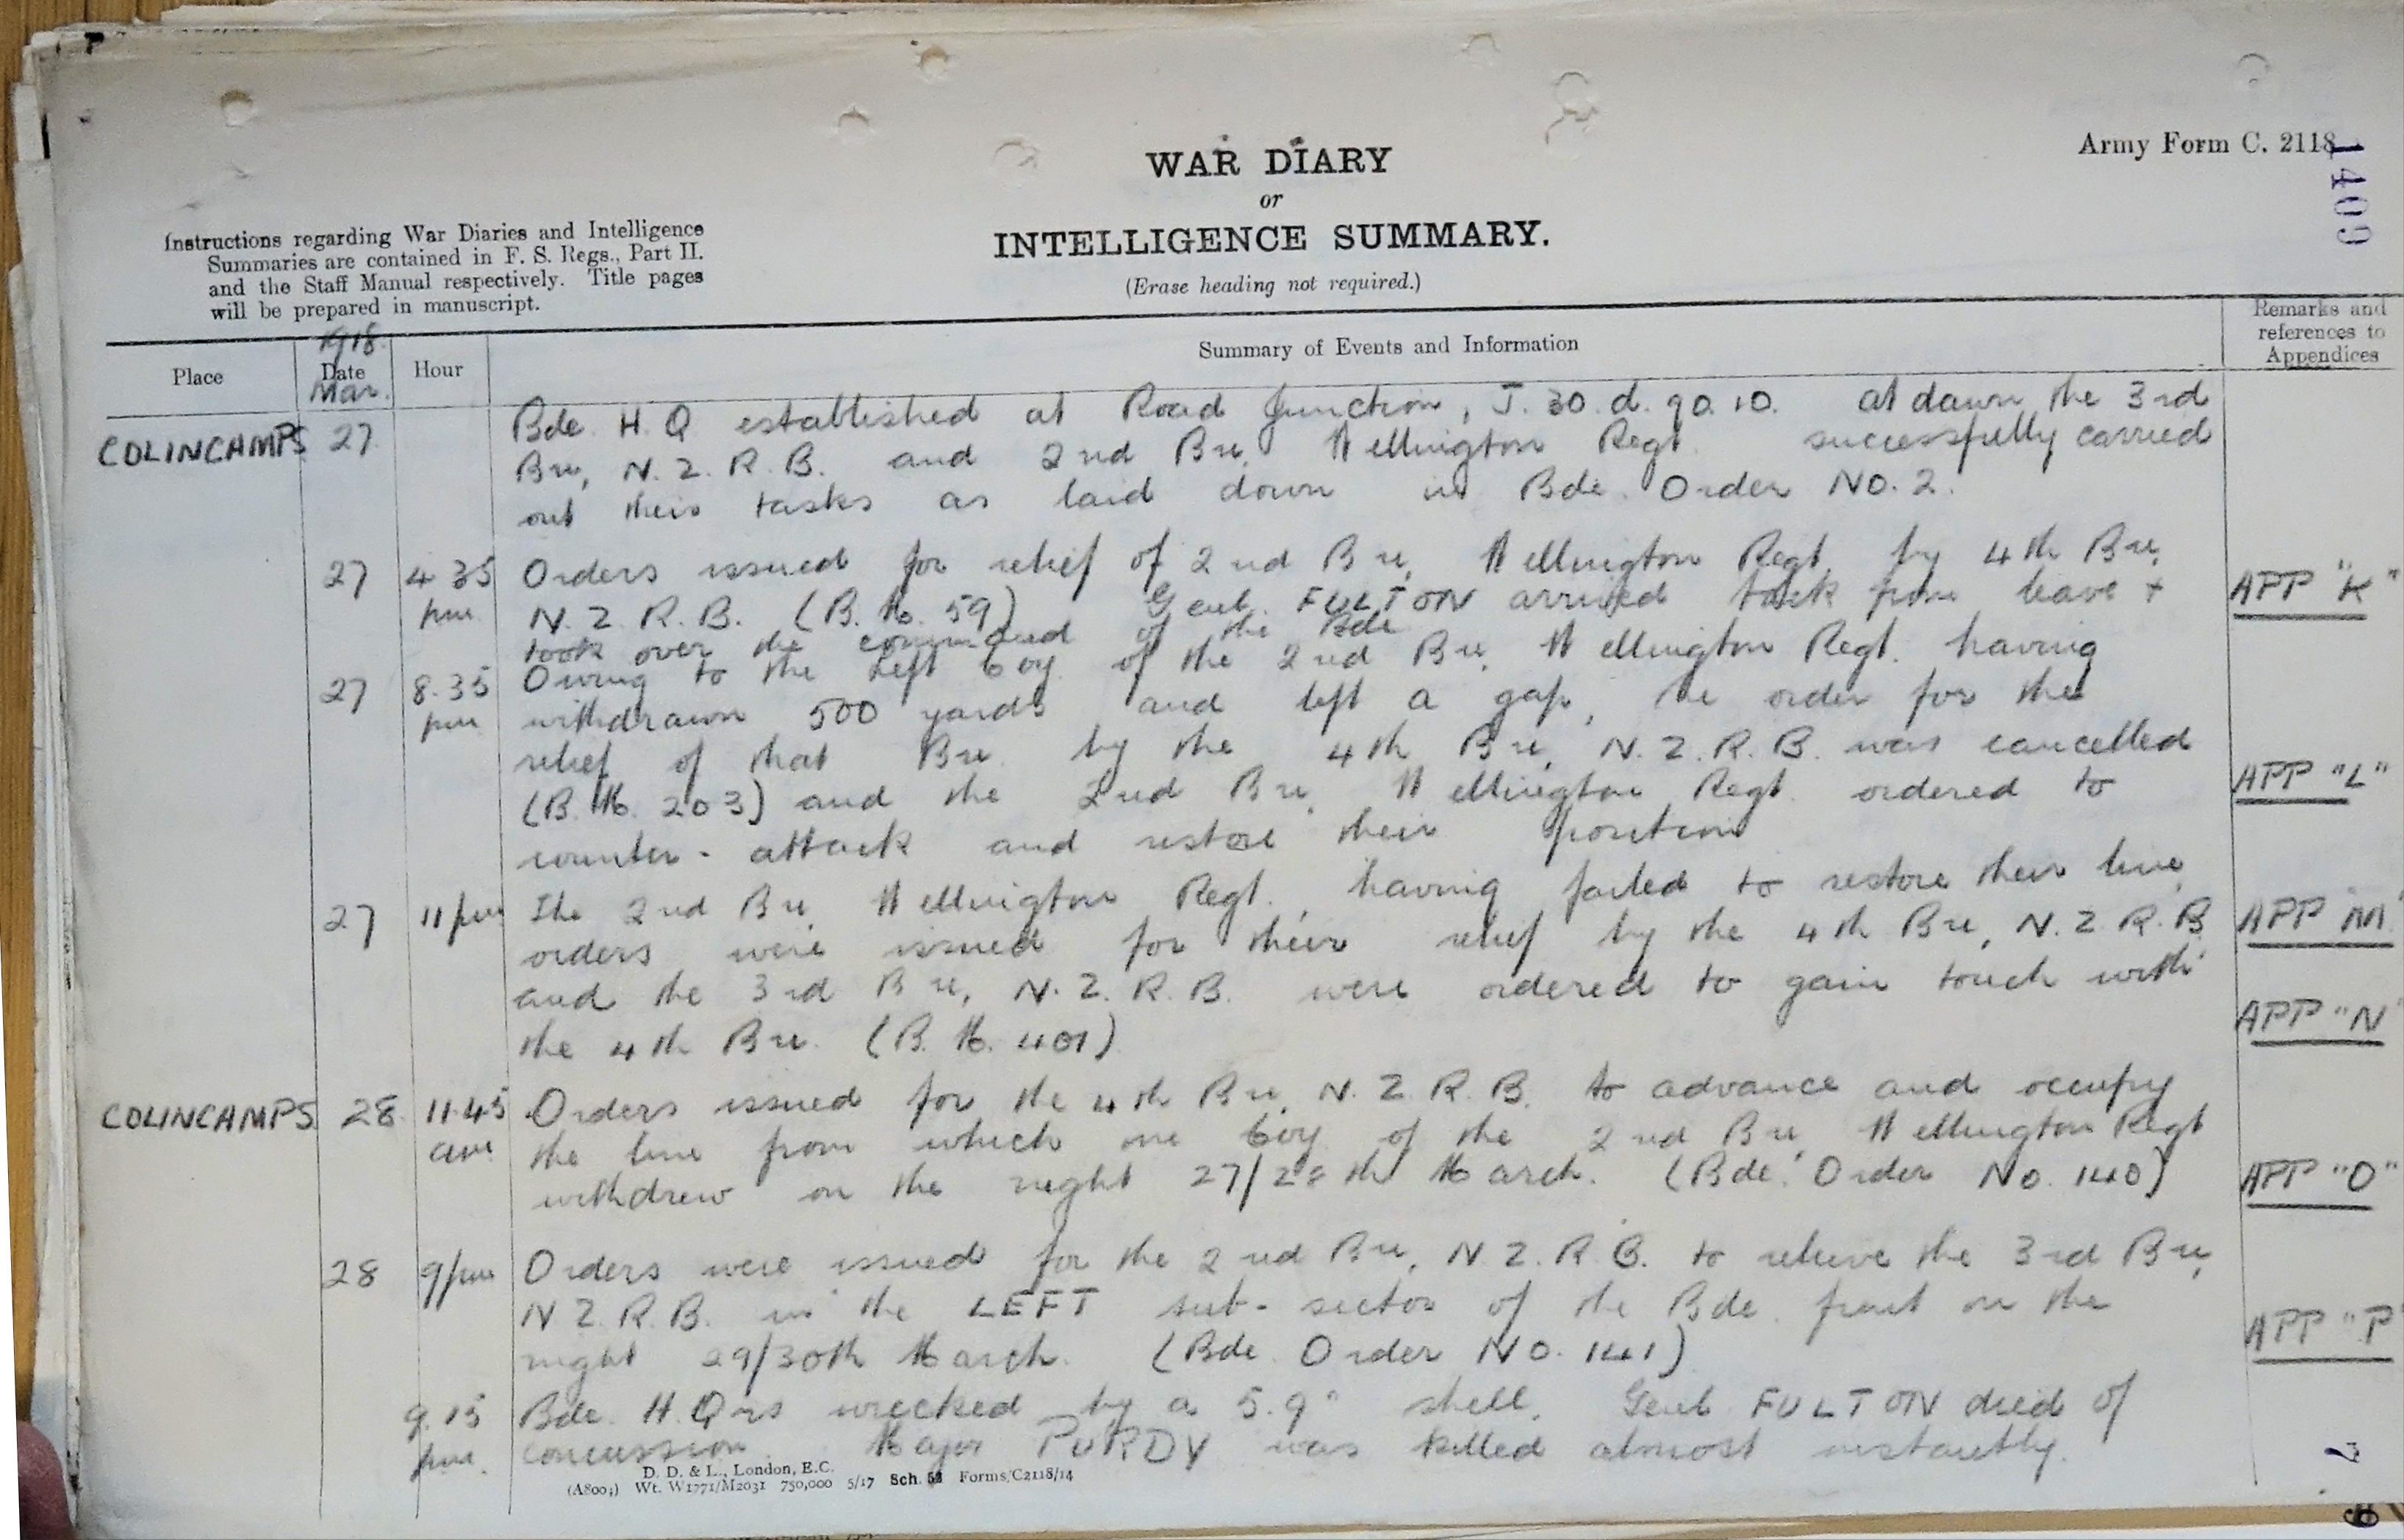 WAR DIARY
or
INTELLIGENCE SUMMARY.
(Erase heading not required.)
Army Form C. 2118
1409
Instructions regarding War Diaries and Intelligence
Summaries are contained in F. S. Regs., Part II.
and the Staff Manual respectively. Title pages
will be prepared in manuscript.
Place
1918.
Date
Mar.
Hour
Summary of Events and Information
Remarks and
references to
Appendices
COLINCAMPS 27 Bde. H.Q established at Road Junction, J.30.d.90.10. At dawn the 3rd
Bn, N.Z.R.B. and 2nd Bn. Wellington Regt. successfully carried
out their tasks as laid down in Bde. Order NO.2.
27 4 35 Orders issued for relief of 2nd Bn. Wellington Regt. by 4th Bn.
pm N.Z.R.B. (B.M. 59) Genl. FULTON arrived back from leave + APP "K"
took over the command of the Bde
27 8.35 Owing to the Left Coy of the 2nd Bn. Wellington Regt. having
pm withdrawn 500 yards and left a gap, the order for the
relief of that Bn. by the 4th Bn, N.Z.R.B. was cancelled
(B.M. 203) and the 2nd Bn. Wellington Regt. ordered to APP "L"
counter-attack and restore their position
27 11 pm The 2nd Bn. Wellington Regt., having failed to restore their line,
orders were issued for their relief by the 4th Bn, N.Z.R.B. APP "M"
and the 3rd Bn, N.Z.R.B. were ordered to gain touch with
the 4th Bn. (B.M. 401) APP "N"
COLINCAMPS 28 11.45 Orders issued for the 4th Bn. N.Z.R.B. to advance and occupy
am the line from which one Coy of the 2nd Bn, Wellington Regt
withdrew on the night 27/28th March. (Bde. Order No. 140) APP "O"
28 9 pm Orders were issued for the 2nd Bn, N.Z.R.B. to relieve the 3rd Bn,
N.Z.R.B. in the LEFT sub-sector of the Bde. front on the
night 29/30th March. (Bde Order NO. 141) APP "P
9.15 Bde. H.Qrs wrecked by a 5.9" shell. Genl FULTON died of
pm. concussion. Major PURDY was killed almost instantly.
D. D. & L., London, E.C.
(A8004) Wt. W1771/M2031 750,000 5/17 Sch. 52 Forms/C2118/14
7